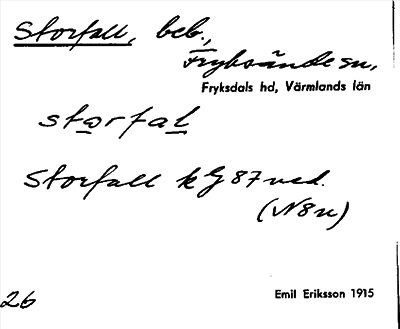 Storfall, beb.,
Fryksände sn,
Fryksdals hd, Värmlands län
stωrfal
Storfall k G 87 ned.
(N8u)
26
Emil Eriksson 1915